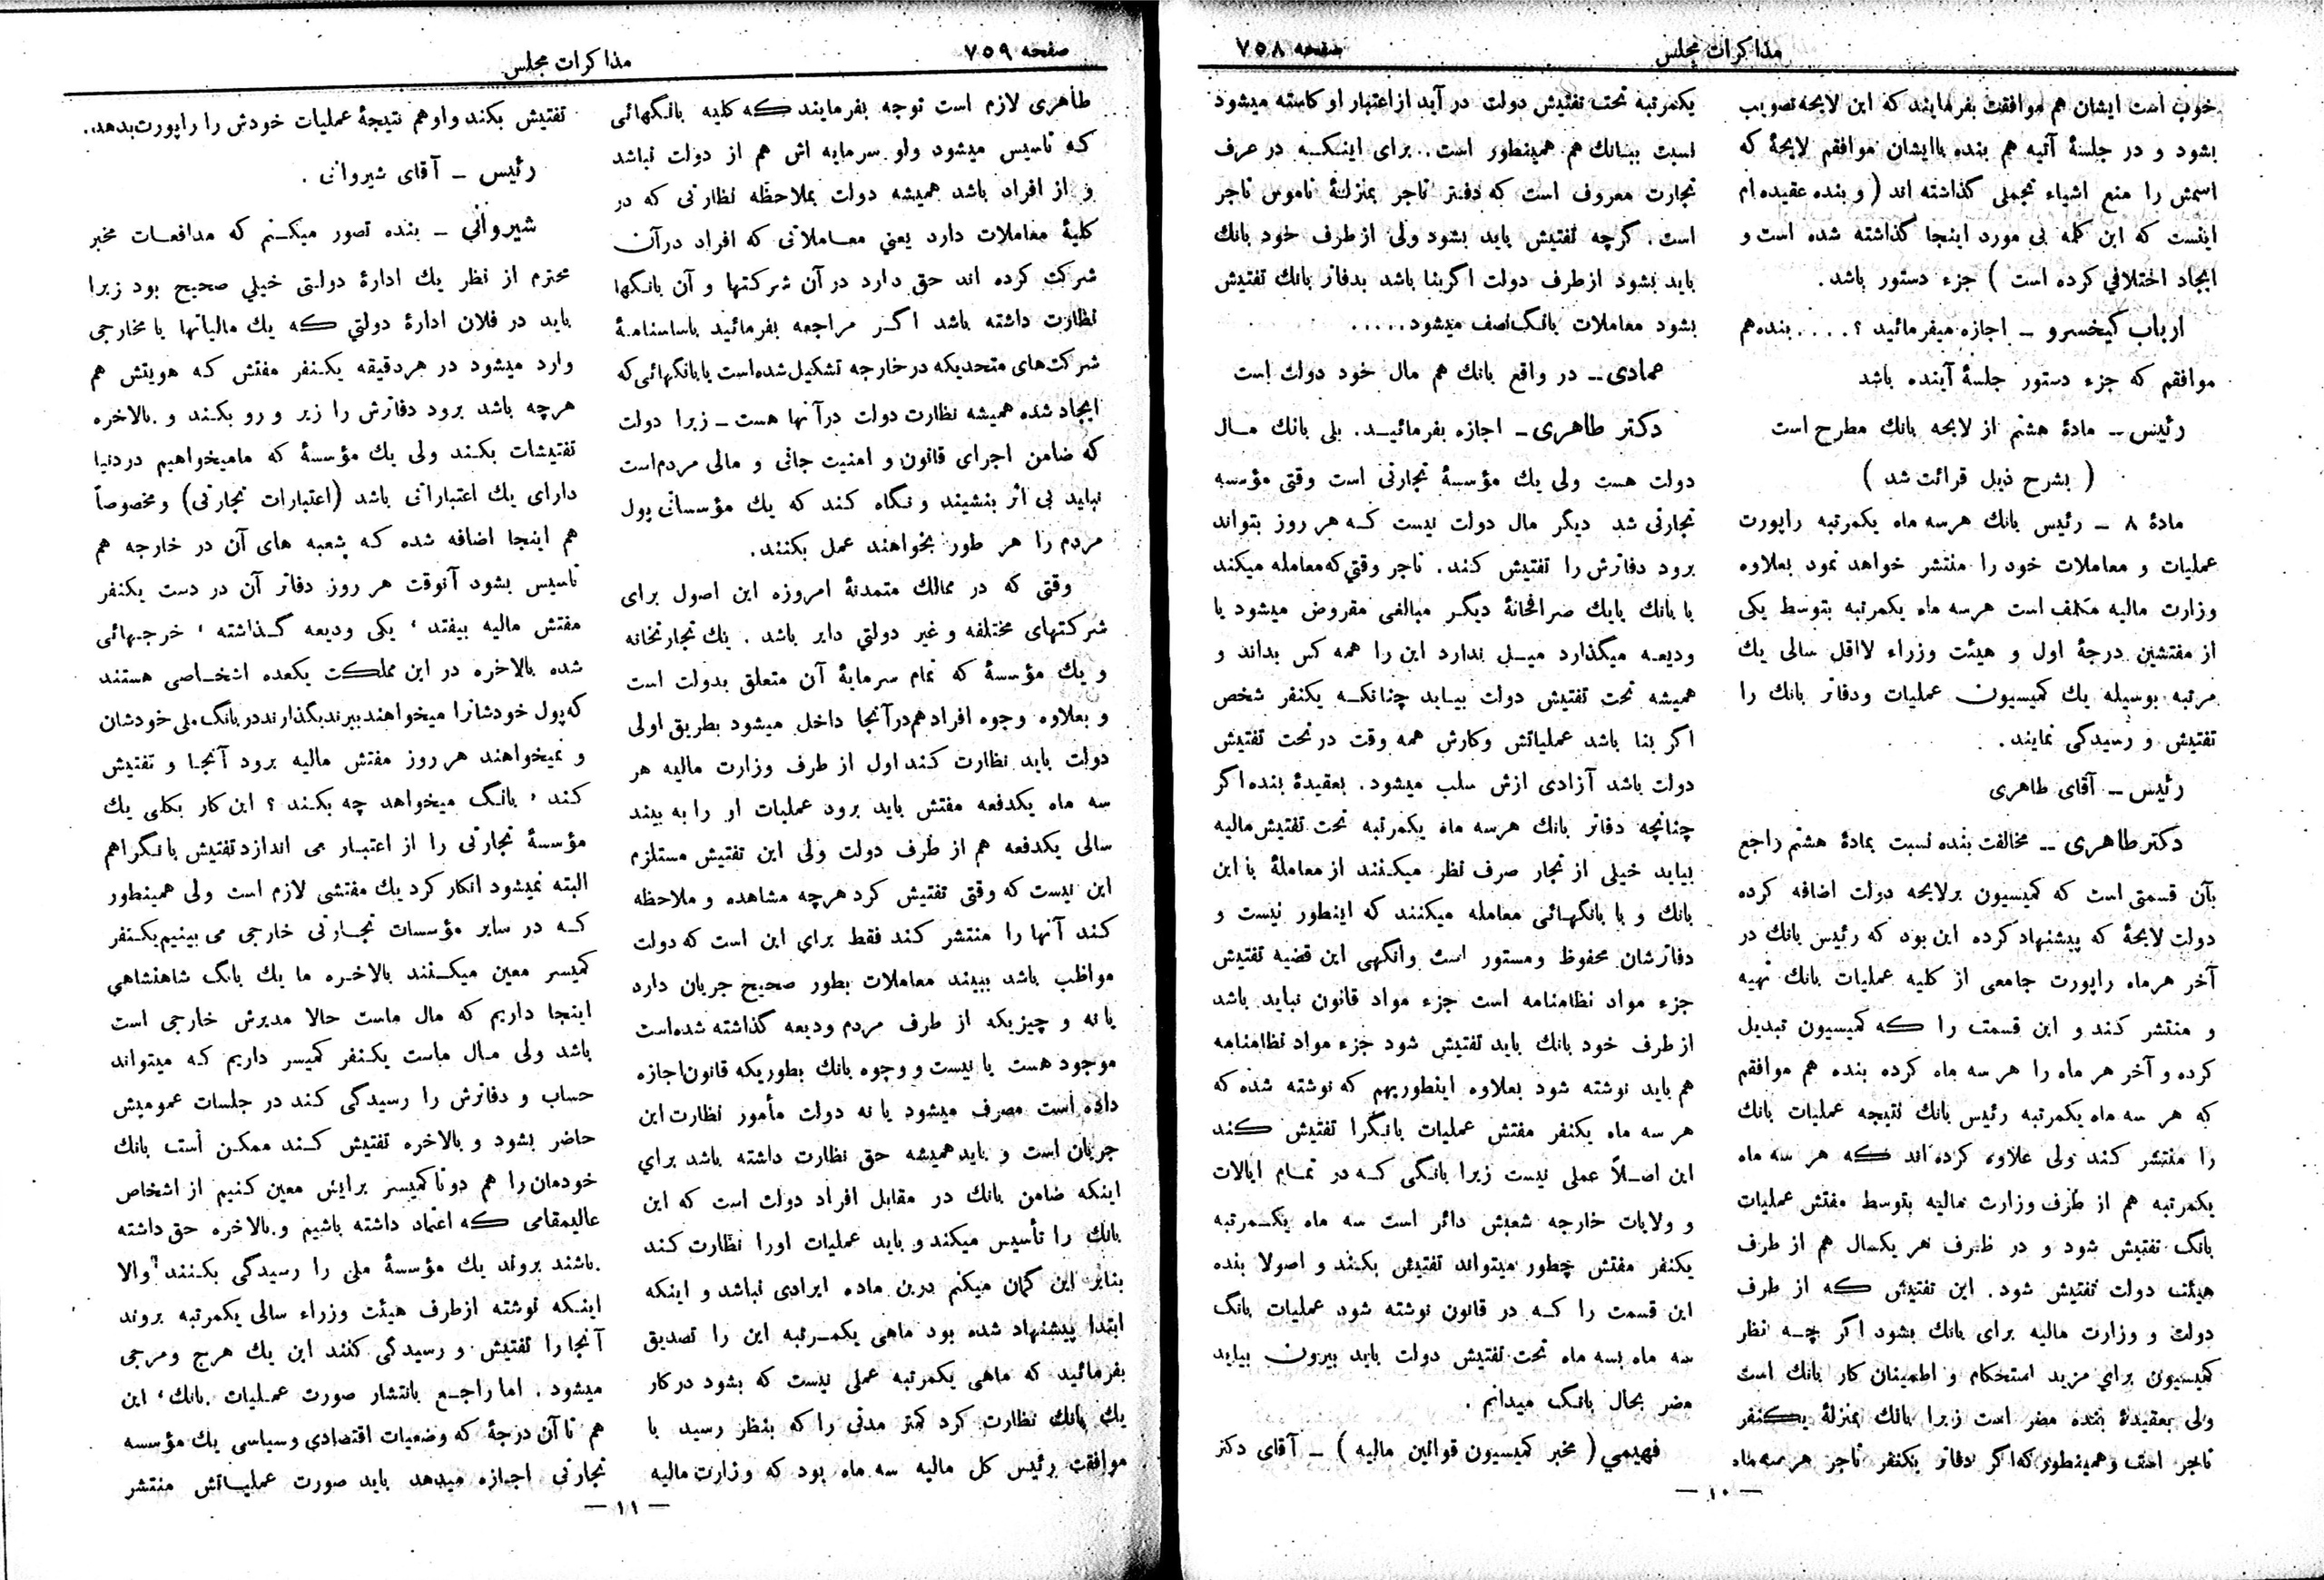 صفحه ۷۵۸
مذاکرات مجلس
خوب است ایشان هم موافقت بفرمایند که این لایحه تصویب
بشود و در جلسهٔ آتیه هم بنده باایشان موافقم لایحهٔ که
اسمش را منع اشیاء تجملی گذاشته اند ( و بنده عقیده ام
اینست که این کلمه بی مورد اینجا گذاشته شده است و
ایجاد اختلافی کرده است ) جزء دستور باشد .
ارباب کیخسرو ــ اجازه میفرمائید ؟ .... بنده هم
موافقم که جزء دستور جلسهٔ آینده باشد
رئیس ــ مادهٔ هشتم از لایحه بانك مطرح است
( بشرح ذیل قرائت شد )
مادهٔ ۸ ــ رئیس بانك هرسه ماه یکمرتبه راپورت
عملیات و معاملات خود را منتشر خواهد نمود بعلاوه
وزارت مالیه مکلف است هرسه ماه یکمرتبه بتوسط یکی
از مفتشین درجهٔ اول و هیئت وزراء لااقل سالی یك
مرتبه بوسیله یك کمیسیون عملیات ودفاتر بانك را
تفتیش و رسیدگی نمایند .
رئیس ــ آقای طاهری
دکتر طاهری ــ مخالفت بنده نسبت بمادهٔ هشتم راجع
بآن قسمتی است که کمیسیون برلایحه دولت اضافه کرده
دولت لایحهٔ که پیشنهاد کرده این بود که رئیس بانك در
آخر هرماه راپورت جامعی از کلیه عملیات بانك تهیه
و منتشر کند و این قسمت را که کمیسیون تبدیل
کرده و آخر هر ماه را هر سه ماه کرده بنده هم موافقم
که هر سه ماه یکمرتبه رئیس بانك نتیجه عملیات بانك
را منتشر کند ولی علاوه کرده اند که هر سه ماه
یکمرتبه هم از طرف وزارت مالیه بتوسط مفتش عملیات
بانگ تفتیش شود و در ظرف هر یکسال هم از طرف
هیئت دولت تفتیش شود . این تفتیش که از طرف
دولت و وزارت مالیه برای بانك بشود اگر چه نظر
کمیسیون برای مزید استحکام و اطمینان کار بانك است
ولی بعقیدهٔ بنده مضر است زیرا بانك بمنزلهٔ یکنفر
تاجر است وهمینطور که اگر دفاتر یکنفر تاجر هرسه ماه
یکمرتبه تحت تفتیش دولت در آید از اعتبار او کاسته میشود
نسبت ببانك هم همینطور است .. برای اینکه در عرف
تجارت معروف است که دفتر تاجر بمنزلهٔ ناموس تاجر
است . گرچه تفتیش باید بشود ولی از طرف خود بانك
باید بشود از طرف دولت اگر بنا باشد بدفاتر بانك تفتیش
بشود معاملات بانگ نصف میشود .....
عمادی ــ در واقع بانك هم مال خود دولت است
دکتر طاهری ــ اجازه بفرمائید . بلی بانك مال
دولت هست ولی یك مؤسسهٔ تجارتی است وقتی مؤسسه
تجارتی شد دیگر مال دولت نیست که هر روز بتواند
برود دفاترش را تفتیش کند . تاجر وقتی که معامله میکند
با بانك یایك صرافخانهٔ دیگر مبالغی مقروض میشود یا
ودیعه میگذارد میل ندارد این را همه کس بداند و
همیشه تحت تفتیش دولت بیاید چنانکه یکنفر شخص
اگر بنا باشد عملیاتش وکارش همه وقت در تحت تفتیش
دولت باشد آزادی ازش سلب میشود . بعقیدهٔ بنده اگر
چنانچه دفاتر بانك هرسه ماه یکمرتبه تحت تفتیش مالیه
بیاید خیلی از تجار صرف نظر میکنند از معاملهٔ با این
بانك و با بانگهائی معامله میکنند که اینطور نیست و
دفاترشان محفوظ ومستور است وانگهی این قضیه تفتیش
جزء مواد نظامنامه است جزء مواد قانون نباید باشد
از طرف خود بانك باید تفتیش شود جزء مواد نظامنامه
هم باید نوشته شود بعلاوه اینطوریهم که نوشته شده که
هر سه ماه یکنفر مفتش عملیات بانگرا تفتیش کند
این اصلاً عملی نیست زیرا بانگی که در تمام ایالات
و ولایات خارجه شعبش دائر است سه ماه یکمرتبه
یکنفر مفتش چطور میتواند تفتیش بکند و اصولا بنده
این قسمت را که در قانون نوشته شود عملیات بانگ
سه ماه بسه ماه تحت تفتیش دولت باید بیرون بیاید
مضر بحال بانگ میدانم .
فهیمی ( مخبر کمیسیون قوانین مالیه ) ــ آقای دکتر
ــ ۱۰ ــ
صفحه ۷۵۹
مذاکرات مجلس
طاهری لازم است توجه بفرمایند که کلیه بانگهائی
که تاسیس میشود ولو سرمایه اش هم از دولت نباشد
و از افراد باشد همیشه دولت بملاحظه نظارتی که در
کلیهٔ معاملات دارد یعنی معاملاتی که افراد درآن
شرکت کرده اند حق دارد در آن شرکتها و آن بانگها
نظارت داشته باشد اگر مراجعه بفرمائید باساسنامهٔ
شرکت‌های متحدیکه در خارجه تشکیل شده است یا بانگهائی که
ایجاد شده همیشه نظارت دولت درآنها هست ــ زیرا دولت
که ضامن اجرای قانون و امنیت جانی و مالی مردم است
نباید بی اثر بنشیند و نگاه کند که یك مؤسساتی پول
مردم را هر طور بخواهند عمل بکنند .
وقتی که در ممالك متمدنهٔ امروزه این اصول برای
شرکتهای مختلفه و غیر دولتی دایر باشد . یك تجارتخانه
و یك مؤسسهٔ که تمام سرمایهٔ آن متعلق بدولت است
و بعلاوه وجوه افراد هم درآنجا داخل میشود بطریق اولی
دولت باید نظارت کند اول از طرف وزارت مالیه هر
سه ماه یکدفعه مفتش باید برود عملیات او را به بیند
سالی یکدفعه هم از طرف دولت ولی این تفتیش مستلزم
این نیست که وقتی تفتیش کرد هرچه مشاهده و ملاحظه
کند آنها را منتشر کند فقط برای این است که دولت
مواظب باشد ببیند معاملات بطور صحیح جریان دارد
یا نه و چیزیکه از طرف مردم ودیعه گذاشته شده است
موجود هست یا نیست و وجوه بانك بطوریکه قانون اجازه
داده است مصرف میشود یا نه دولت مأمور نظارت این
جریان است و باید همیشه حق نظارت داشته باشد برای
اینکه ضامن بانك در مقابل افراد دولت است که این
بانك را تأسیس میکند و باید عملیات اورا نظارت کند
بنابر این گمان میکنم درین ماده ایرادی نباشد و اینکه
ابتدا پیشنهاد شده بود ماهی یکمرتبه این را تصدیق
بفرمائید که ماهی یکمرتبه عملی نیست که بشود در کار
یك بانك نظارت کرد کمتر مدتی را که بنظر رسید با
موافقت رئیس کل مالیه سه ماه بود که وزارت مالیه
تفتیش بکند واوهم نتیجهٔ عملیات خودش را راپورت بدهد .
رئیس ــ آقای شیروانی .
شیروانی ــ بنده تصور میکنم که مدافعات مخبر
محترم از نظر یك ادارهٔ دولتی خیلی صحیح بود زیرا
باید در فلان ادارهٔ دولتی که یك مالیاتها یا مخارجی
وارد میشود در هر دقیقه یکنفر مفتش که هویتش هم
هرچه باشد برود دفاترش را زیر و رو بکند و بالاخره
تفتیشات بکند ولی یك مؤسسهٔ که مامیخواهیم در دنیا
دارای یك اعتباراتی باشد (اعتبارات تجارتی) و مخصوصاً
هم اینجا اضافه شده که شعبه های آن در خارجه هم
تاسیس بشود آنوقت هر روز دفاتر آن در دست یکنفر
مفتش مالیه بیفتد ، یکی ودیعه گذاشته ، خرجهائی
شده بالاخره در این مملکت یکعده اشخاصی هستند
که پول خودشانرا میخواهند ببرند بگذارند در بانگ ملی خودشان
و نمیخواهند هر روز مفتش مالیه برود آنجا و تفتیش
کند ، بانگ میخواهد چه بکند ؟ این کار بکلی یك
مؤسسهٔ تجارتی را از اعتبار می اندازد تفتیش بانگراهم
البته نمیشود انکار کرد یك مفتشی لازم است ولی همینطور
که در سایر مؤسسات تجارتی خارجی می بینیم یکنفر
کمیسر معین میکنند بالاخره ما یك بانگ شاهنشاهی
اینجا داریم که مال ماست حالا مدیرش خارجی است
باشد ولی مال ماست یکنفر کمیسر داریم که میتواند
حساب و دفاترش را رسیدگی کند در جلسات عمومیش
حاضر بشود و بالاخره تفتیش کند ممکن است بانك
خودمان را هم دوتا کمیسر برایش معین کنیم از اشخاص
عالیمقامی که اعتماد داشته باشیم و بالاخره حق داشته
باشند بروند یك مؤسسهٔ ملی را رسیدگی بکنند والا
اینکه نوشته از طرف هیئت وزراء سالی یکمرتبه بروند
آنجا را تفتیش و رسیدگی کنند این یك هرج ومرجی
میشود . اما راجع بانتشار صورت عملیات بانك ، این
هم تا آن درجهٔ که وضعیات اقتصادی وسیاسی یك مؤسسه
تجارتی اجازه میدهد باید صورت عملیاتش منتشر
ــ ۱۱ ــ